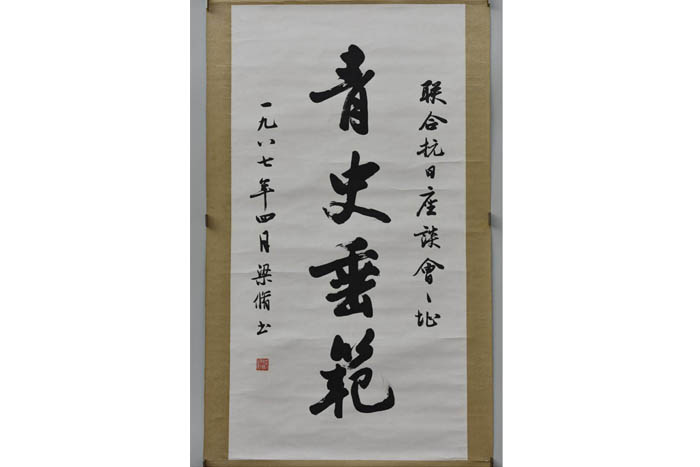 联合抗日座談會會址
青史垂範
一九八七年四月梁脩书